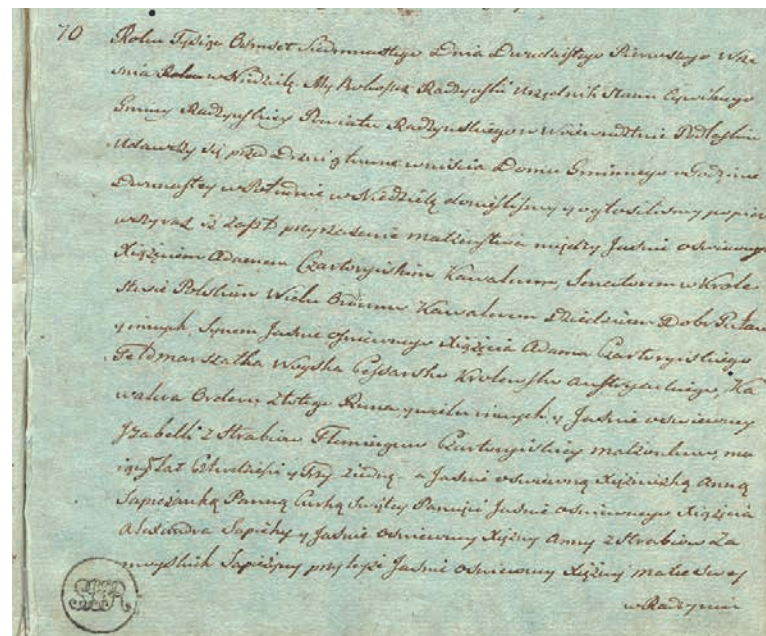 70 Roku Tysiąc Osmset Siedmnastego Dnia Dwudziestego Pierwszego Wrze
snia Roku w Niedzielę. My Burmistrz Radzynski Urzędnik Stanu Cywilnego
Gminy Radzynskiey Powiatu Radzynskiego w Woiewodztwie Podlaskim
Udawszy się przed Drzwi głowne wniścia Domu Gminnego o Godzinie
Dwunastey w Południe w Niedzielę donieslismy y ogłosilismy po pierw
wszy raz iż zaszło przyrzeczenie małżenstwa między Jasnie oswieconym
Xiążęciem Adamem Czartoryiskim Kawalerem, Senatorem w Krole
stwie Polskim Wielu Orderow Kawalerem Dziedzicem Dobr Puław
y innych, Synem Jasnie Oswieconego Xiążęcia Adama Czartoryiskiego
Feldmarszałka Woyska Cesarsko Krolewsko Austryackiego, Ka
walera Orderu złotego Runa y wielu innych y Jasnie oswieconey
Izabelli z Hrabiow Flemingow Czartoryiskiey małżonkow, ma
iący Lat Czterdziesci y Trzy z iedney - a Jasnie oswieconą Xiężniczką Anną
Sapieżanką Panną Curką Swiętey Pamięci Jasnie oswieconego Xiążęcia
Alexandra Sapiehy y Jasnie Oswieconey Xiężny Anny z Hrabiow Za
moyskich Sapieżyny przy teyże Jasnie oswieconey Xiężny matce swey
w Radzyniu